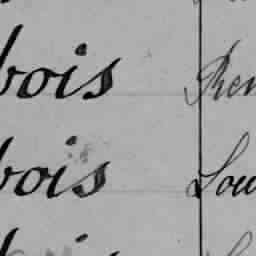 bois Ren
bois Lou